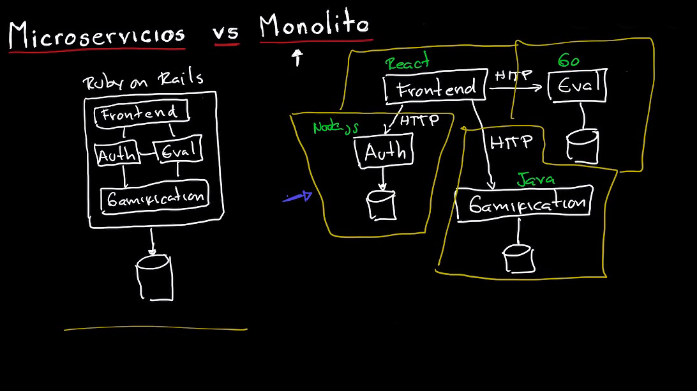 Microservicios vs Monolito
Ruby on Rails
Frontend
Auth
Eval
Gamification
React
Frontend
HTTP
Go
Eval
Nodejs
HTTP
Auth
HTTP
Java
Gamification